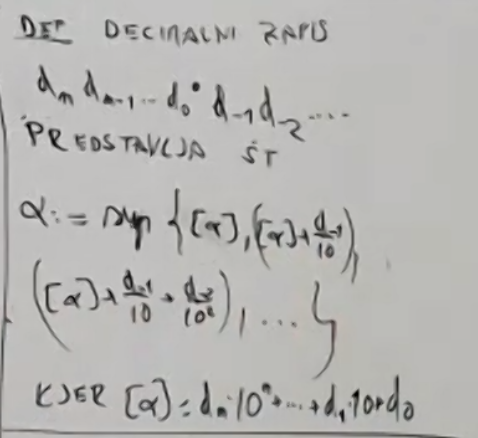 DEF DECIMALNI ZAPIS
dₙ dₙ₋₁ ... d₀ • d₋₁ d₋₂ ....
PREDSTAVLJA ŠT
α := sup { [α], ([α] + d₋₁/10),
([α] + d₋₁/10 + d₋₂/10²), ... }
KJER [α] = dₙ·10ⁿ + ... + d₁·10 + d₀